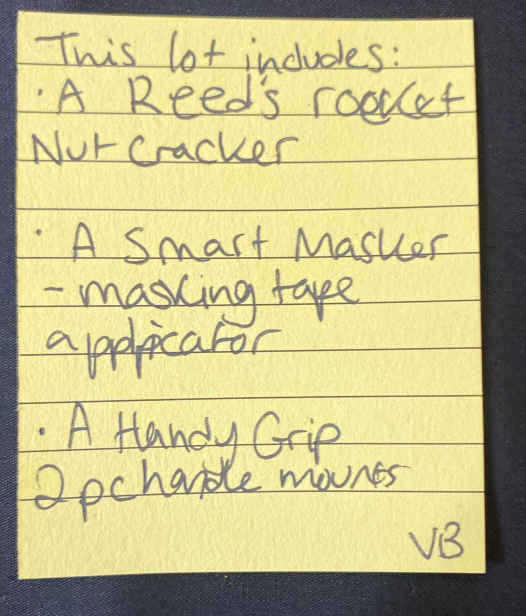 This lot includes:
· A Reed's rocket
Nut Cracker
· A Smart Masker
- masking tape
applicator
· A Handy Grip
2 pc handle mounts
VB